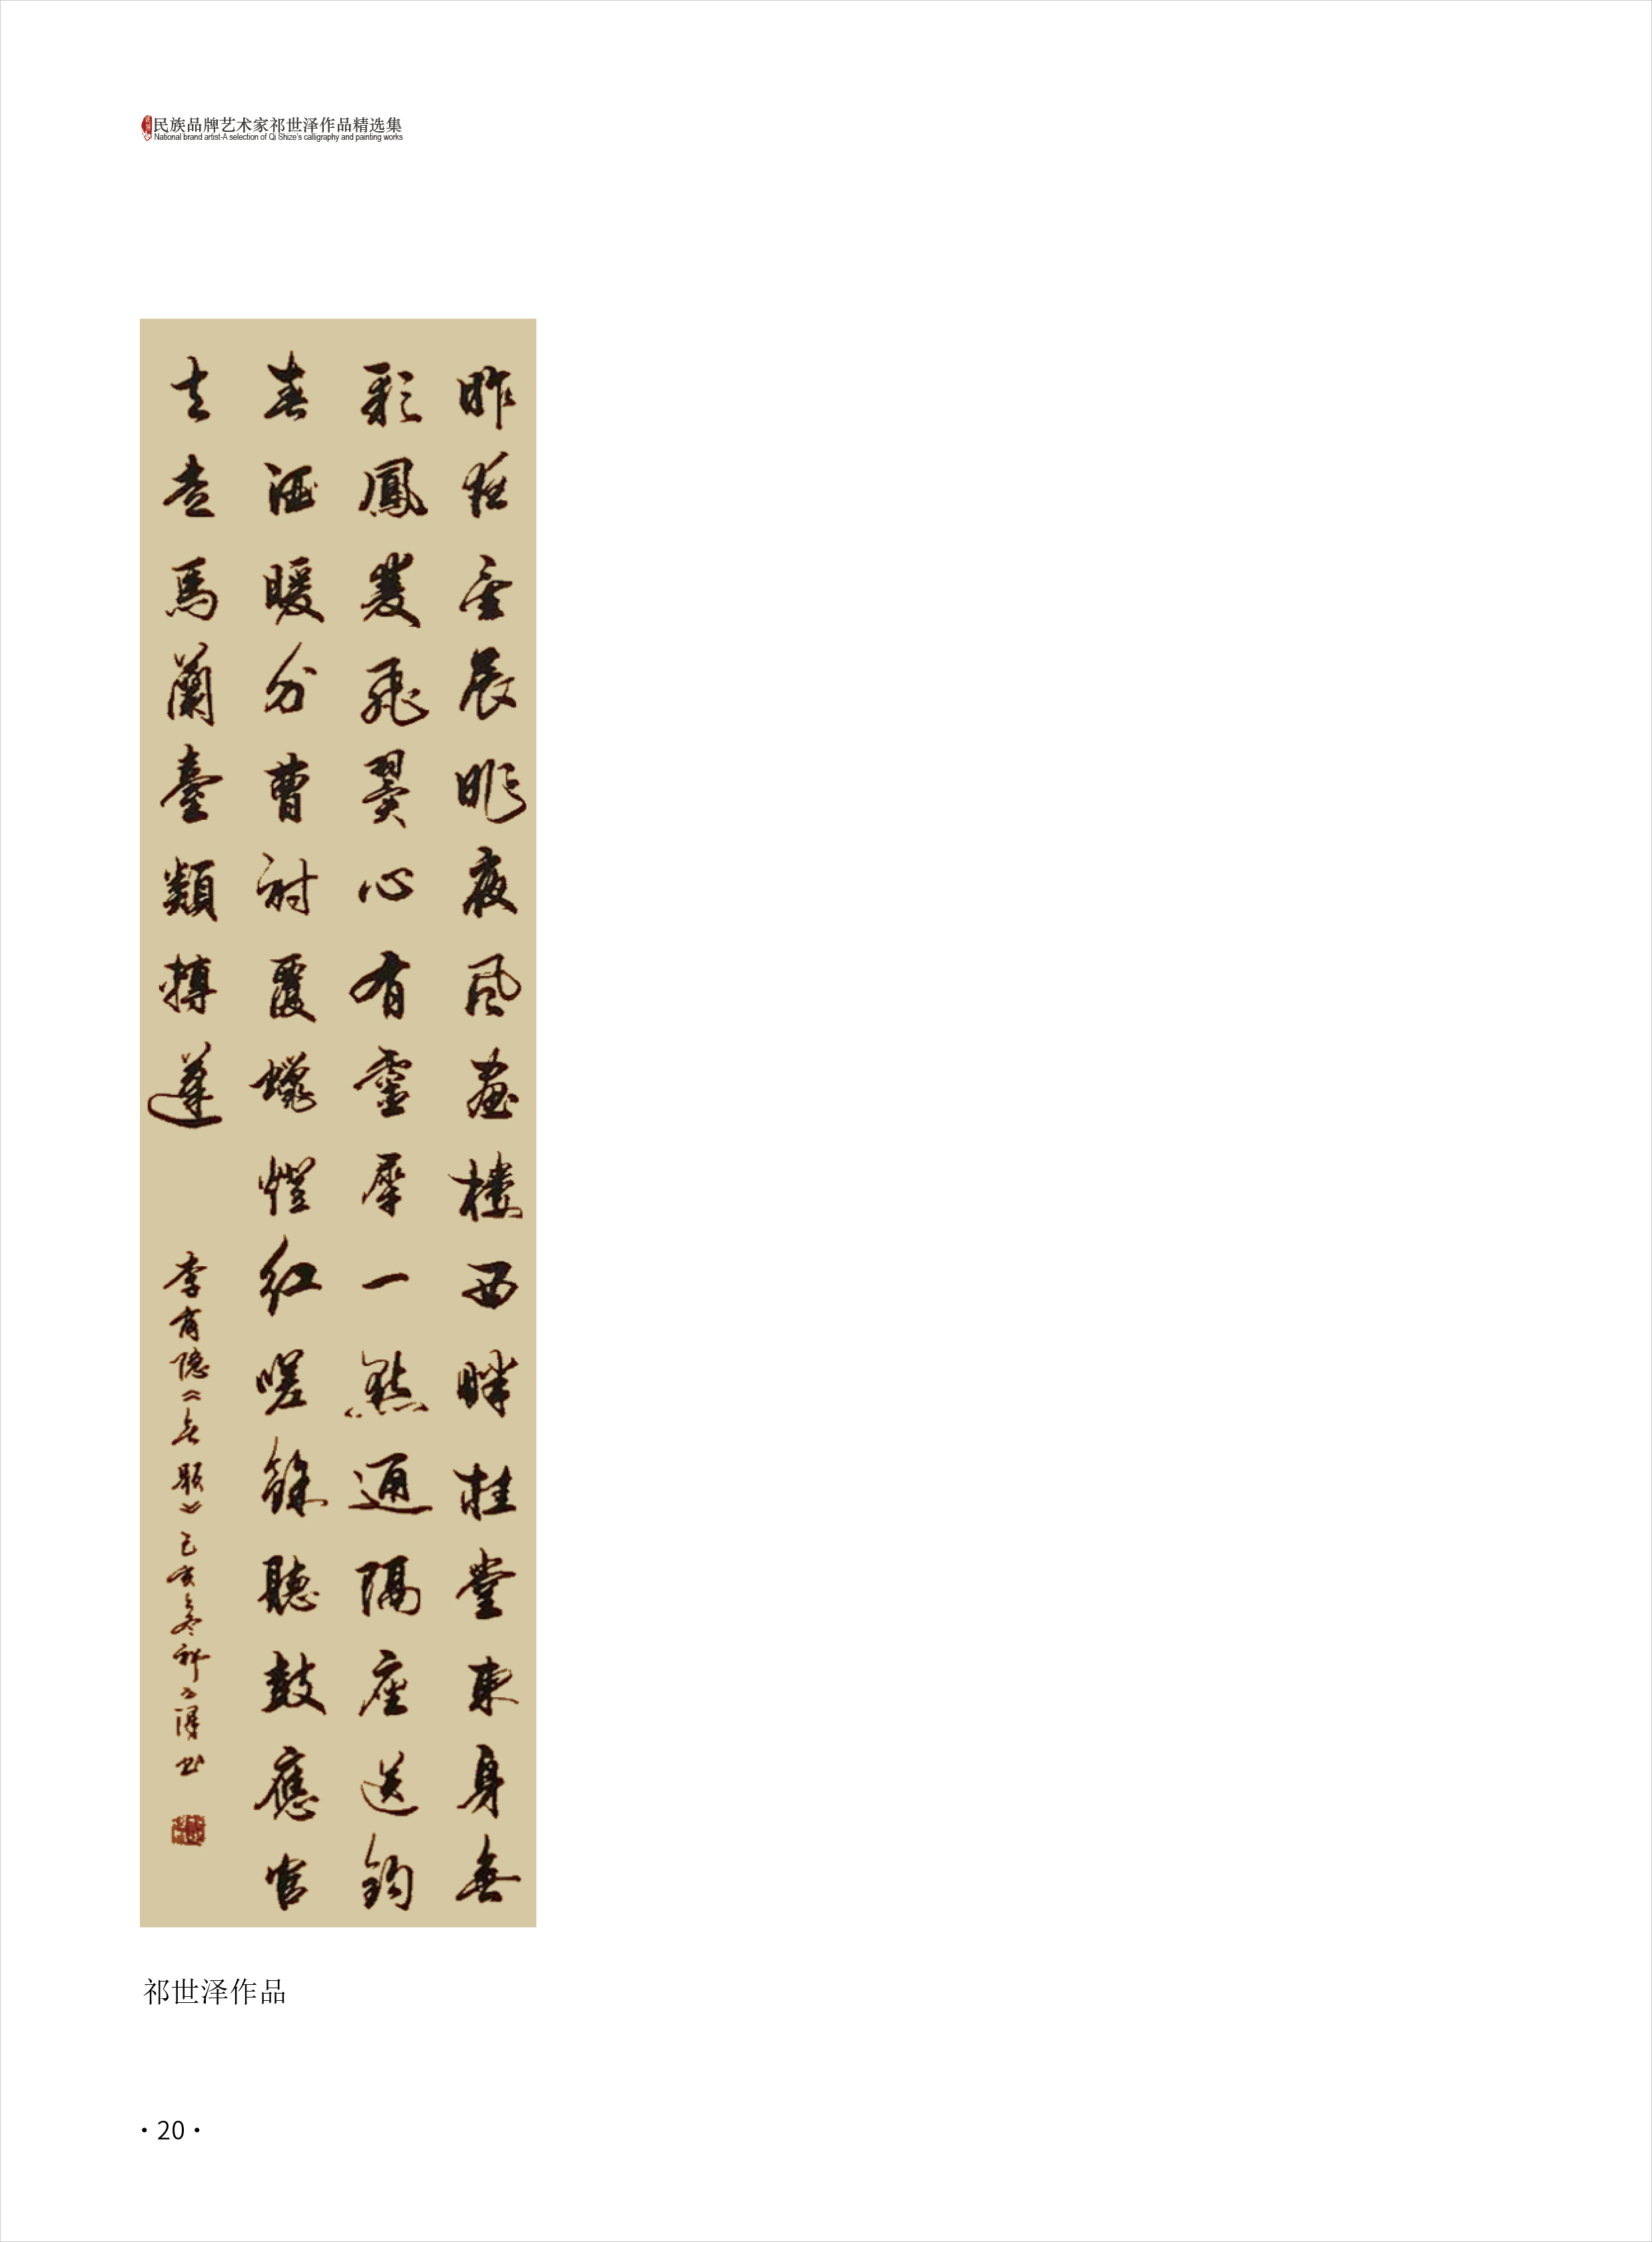 民族品牌艺术家祁世泽作品精选集
National brand artist-A selection of Qi Shize's calligraphy and painting works
昨夜星辰昨夜风畫樓西畔桂堂東身無
彩鳳雙飛翼心有靈犀一點通隔座送鉤
春酒暖分曹射覆蠟燈紅嗟餘聽鼓應官
去走馬蘭臺類轉蓬
李商隱《无题》己亥之冬祁世澤书
祁世泽作品
·20·